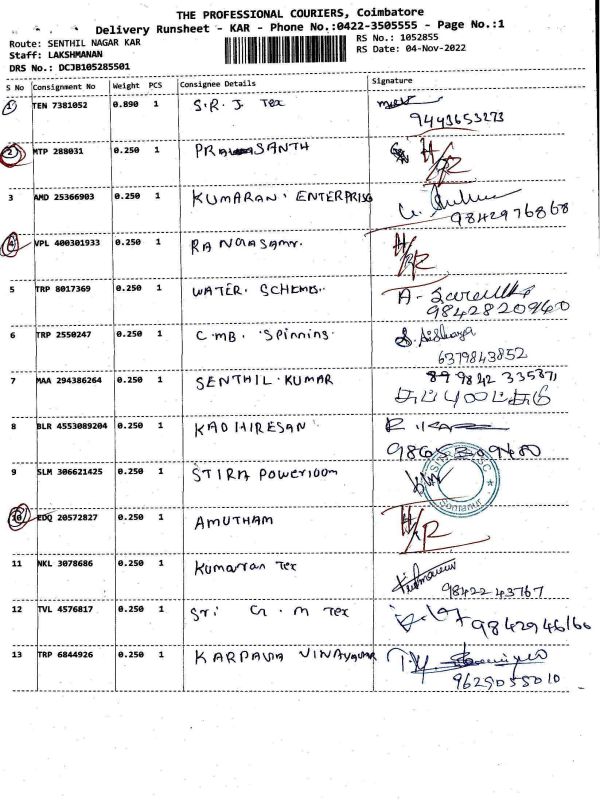 THE PROFESSIONAL COURIERS, Coimbatore
Delivery Runsheet - KAR - Phone No.:0422-3505555 - Page No.:1
Route: SENTHIL NAGAR KAR
RS No.: 1052855
Staff: LAKSHMANAN
RS Date: 04-Nov-2022
DRS No.: DCJB105285501
S No Consignment No Weight PCS Consignee Details Signature
1 TEN 7381052 0.890 1 S.R.J Tex
9443653273
2 MTP 288031 0.250 1 PRASANTH H/R
3 AMD 25366903 0.250 1 KUMARAN ENTERPRISE
9842976868
4 VPL 400301933 0.250 1 RANGASAMY. H/R
5 TRP 8017369 0.250 1 WATER. SCHEMS.. A-
9842820960
6 TRP 2550247 0.250 1 C.MB. Spinning.
6379843852
7 MAA 294386264 0.250 1 SENTHIL.KUMAR 89 9842 335371
8 BLR 4553089204 0.250 1 KADHIRESAN
9 SLM 306621425 0.250 1 STIRA Powerloom
Somanur
10 EDQ 20572827 0.250 1 AMUTHAM H/R
11 NKL 3078686 0.250 1 Kumarran Tex
98422 43767
12 TVL 4576817 0.250 1 Sri G.M Tex
9842946166
13 TRP 6844926 0.250 1 KARPAGA VINAYAGAR T.M.
9629055010